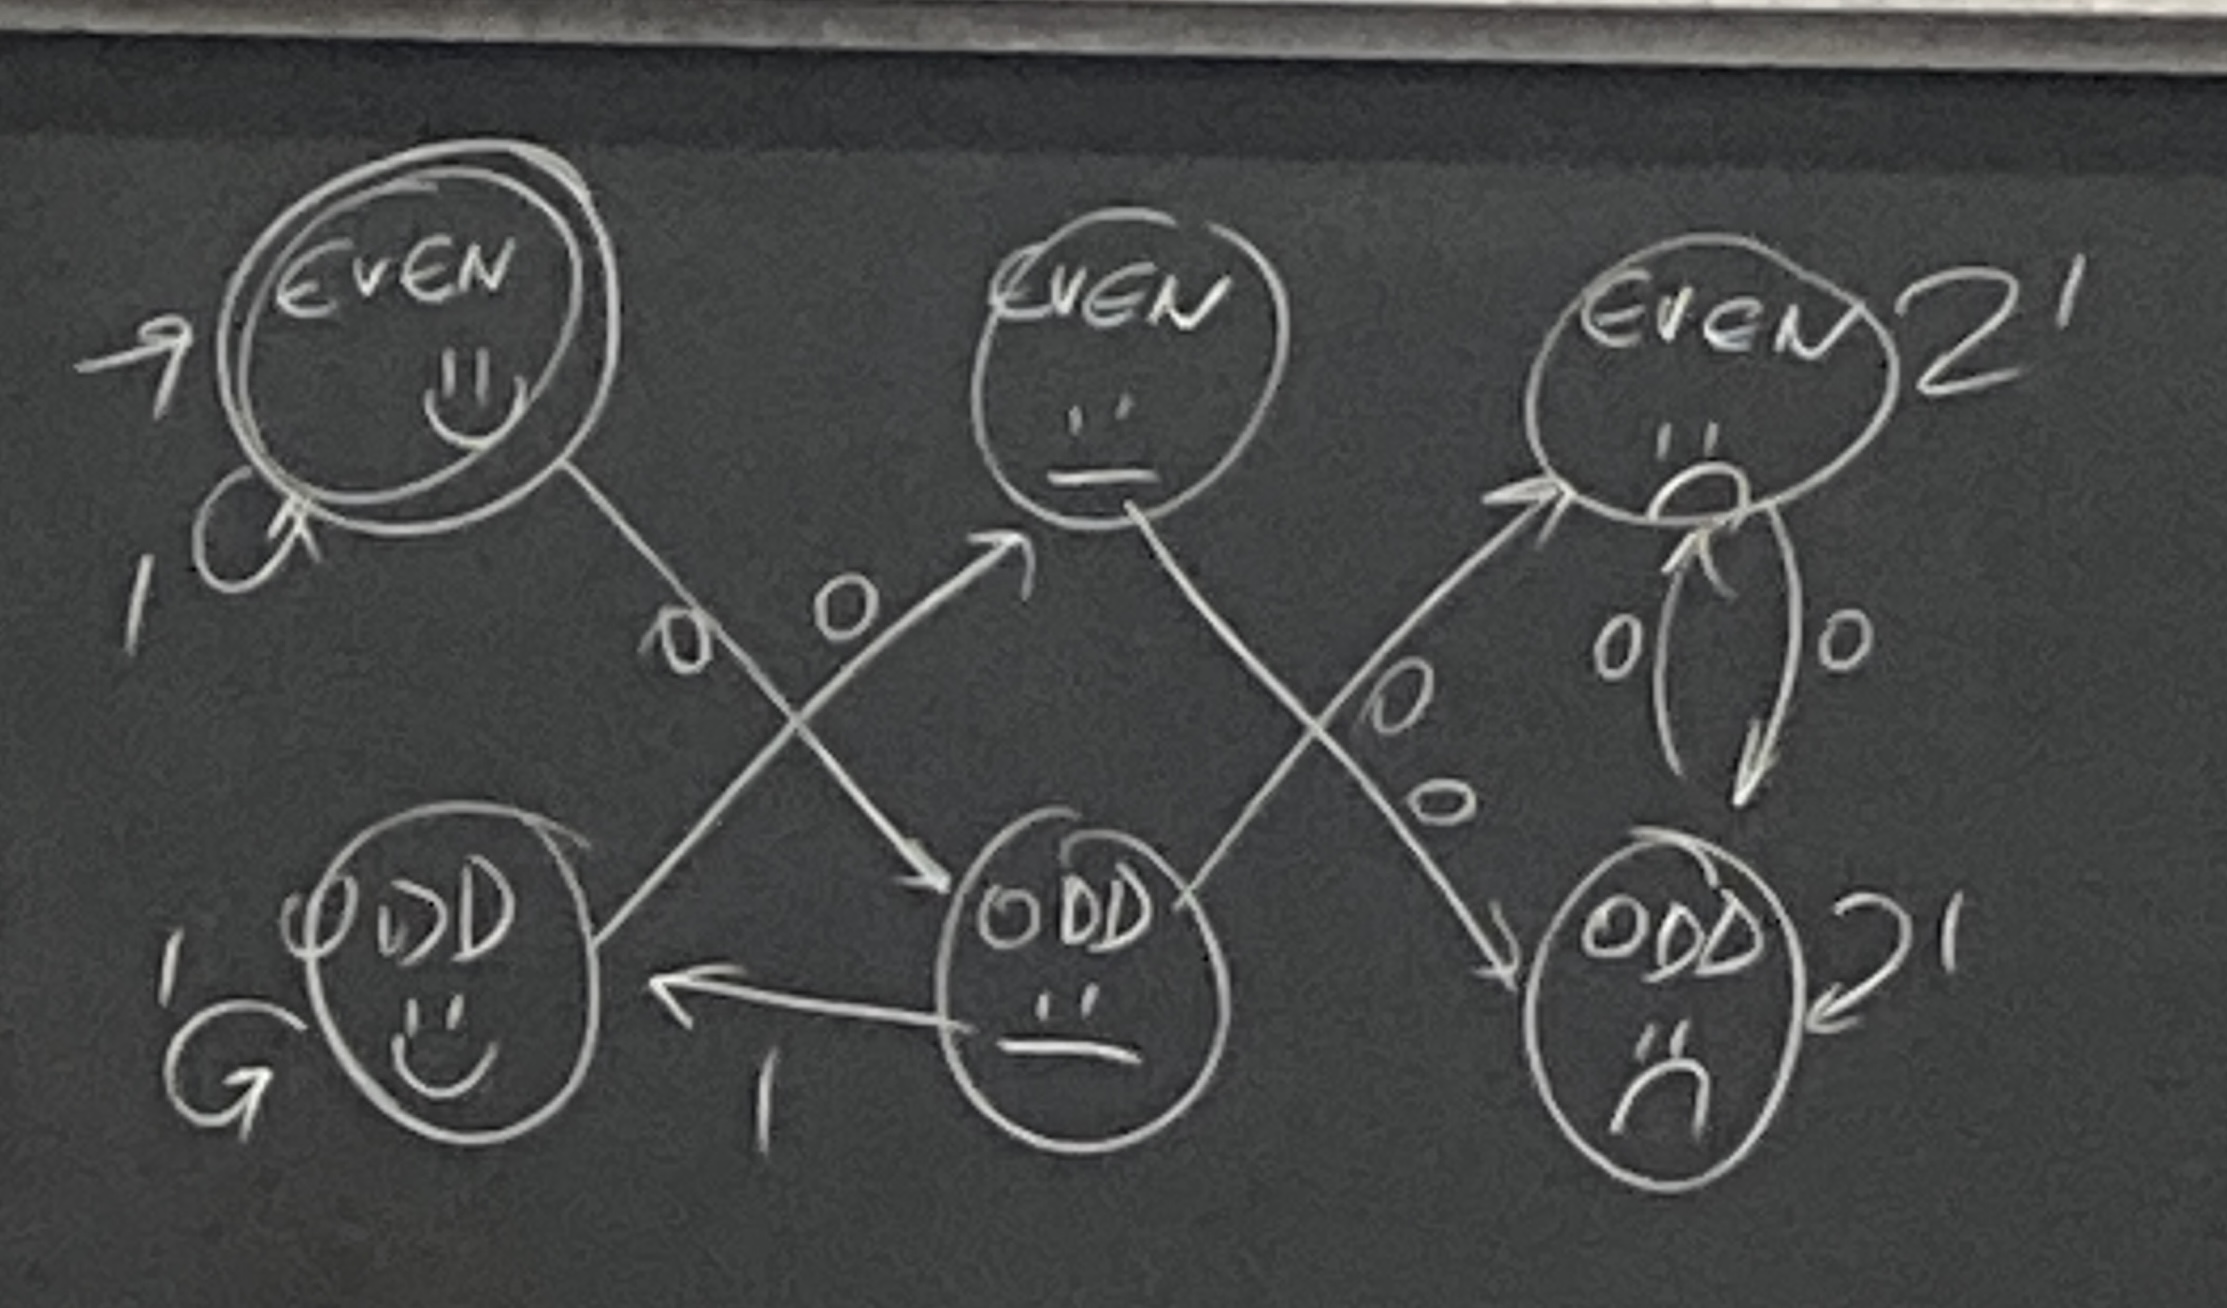 EVEN EVEN EVEN 1
1 0 0 0 0 0
0
ODD ODD ODD 1
1
1